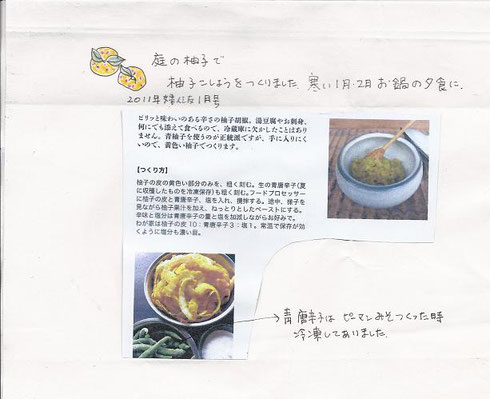 庭の柚子で
柚子こしょうをつくりました。寒い1月・2月お鍋の夕食に.
2011年婦人之友1月号
ピリッと味わいのある辛さの柚子胡椒。湯豆腐やお刺身、
何にでも添えて食べるので、冷蔵庫に欠かしたことはあり
ません。青柚子を使うのが正統派ですが、手に入りにく
いので、黄色い柚子でつくります。
【つくり方】
柚子の皮の黄色い部分のみを、粗く刻む。生の青唐辛子（夏
に収穫したものを冷凍保存）も粗く刻む。フードプロセッサー
に柚子の皮と青唐辛子、塩を入れ、攪拌する。途中、様子を
見ながら柚子果汁を加え、ねっとりとしたペーストにする。
辛味と塩分は青唐辛子の量と塩を加減しながらお好みで。
わが家は柚子の皮10：青唐辛子3：塩1。常温で保存が効
くように塩分も濃い目。
→青唐辛子は ピーマンみそつくった時
冷凍してありました.